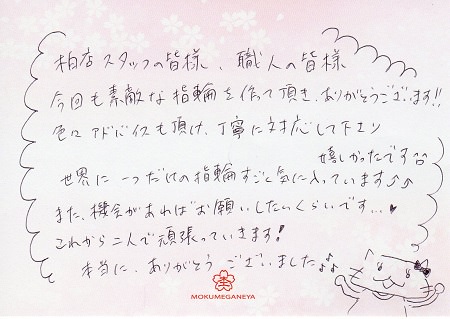 柏店スタッフの皆様、職人の皆様
今回も素敵な指輪を作って頂き、ありがとうございます!!
色々アドバイスも頂け、丁寧に対応して下さり
嬉しかったです
世界に一つだけの指輪すごく気に入っています♪♪
また、機会があればお願いしたいくらいです...♥
これから二人で頑張っていきます!
本当に、ありがとうございました♪♪
MOKUMEGANEYA